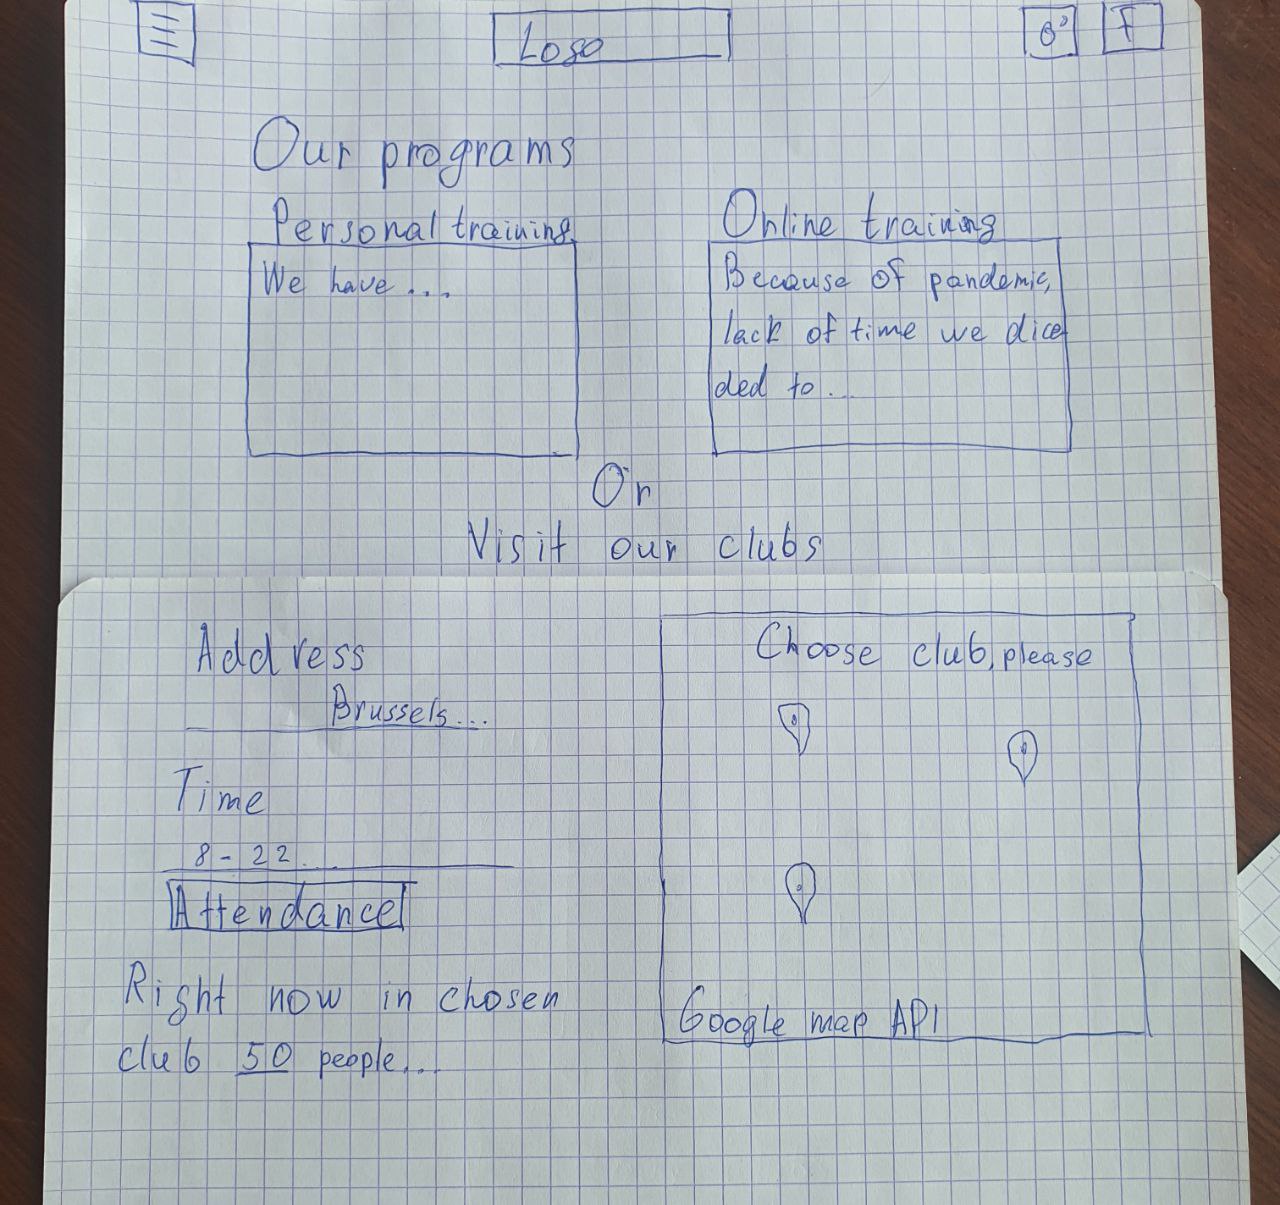 Logo
F
Our programs
Personal training
We have ...
Online training
Because of pandemic,
lack of time we dice
ded to...
Or
Visit our clubs
Address
Brussels...
Time
8 - 22...
Attendance
Right now in chosen
club 50 people...
Choose club, please
Google map API